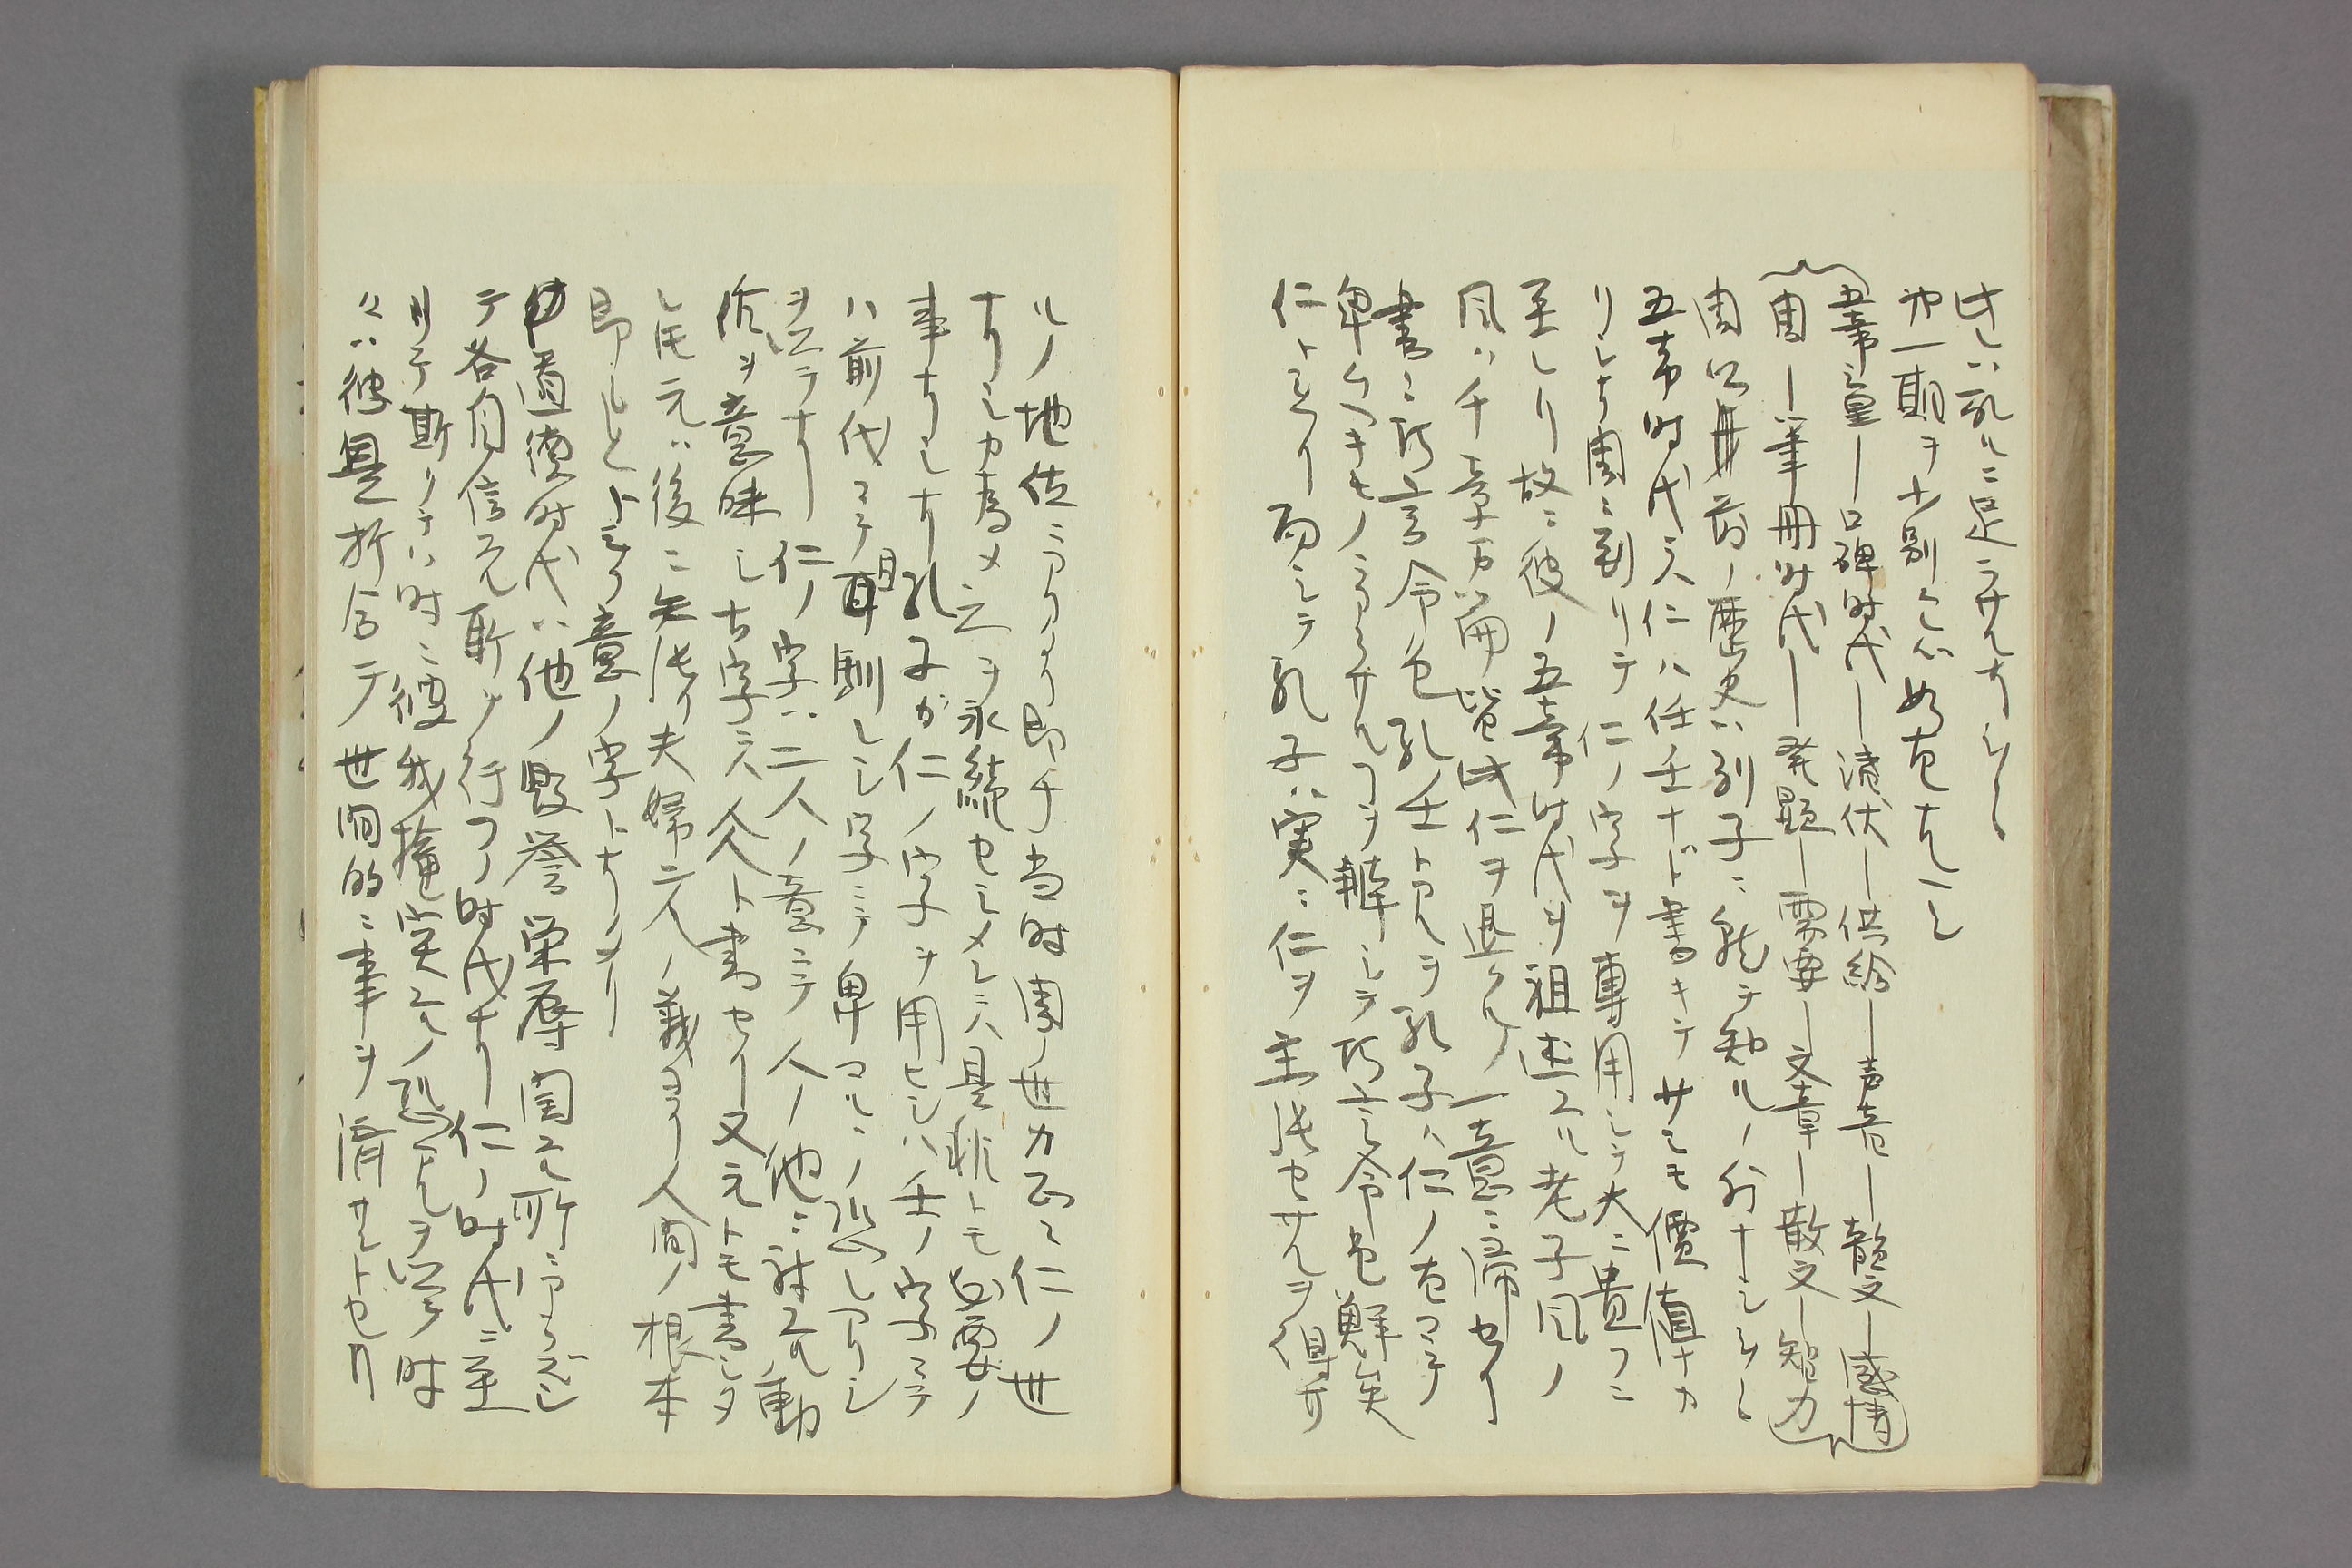 此レハ乱ルニ足ラザルナラン
第一期ヲ大別スレバ如左ナルベシ
五帝三皇―口碑時代―清伏―供給―声音―韻文―感情
周―筆冊時代―発題―需要―文章―散文―智力
周以前ノ歴史ハ列子ニ就テ知ルノ外ナシ
五帝時代ニハ仁ハ任壬ナド書キテサシモ價値ナカ
リシナ周ニ到リテ仁ノ字ヲ専用シテ大ニ貴フニ
至レリ故ニ彼ノ五帝時代ヲ祖述スル老子同ノ
同ハ千章万篇皆此仁ヲ退クルノ一意ニ帰セリ
書ニ巧言令色孔壬トアルヲ孔子ハ仁ノ古フテ
卑シムベキモノニアラザルコヲ辯シテ巧言令色鮮矣
仁ト云ヘリ而シテ孔子ハ実ニ仁ヲ主張セザルヲ得ザ
ルノ地位ニアリタリ即チ当時周ノ世カ正ニ仁ノ世
ナリシカ為メ之ヲ永続セシメシニハ是非トモ必要ノ
事ナリシナリ孔子ガ仁ノ字ヲ用ヒシハ壬ノ字ニテ
ハ前代ニテ耳馴レシ字ニテ卑フルヽノ恐レアリシ
ヲ以テナリ仁ノ字ハ二人ノ意ニテ人ノ他ニ対スル動
作ヲ意味シ古字ニハ人人ト書セリ又元トモ書シタ
レ𪜈元ハ後ニ矢張リ夫婦二人ノ義ヨリ人間ノ根本
即レヒト云フ意ノ字トナレリ
道徳時代ハ他ノ毀誉栄辱関スル所ニアラズシ
テ各自信スル所ヲ行フノ時代ナリ仁ノ時代ニ至
リテ斯クテハ時ニ彼我撞突スルノ恐アルヲ以テ時
々ハ彼是折合テ世間的ニ事ヲ済サントセリ